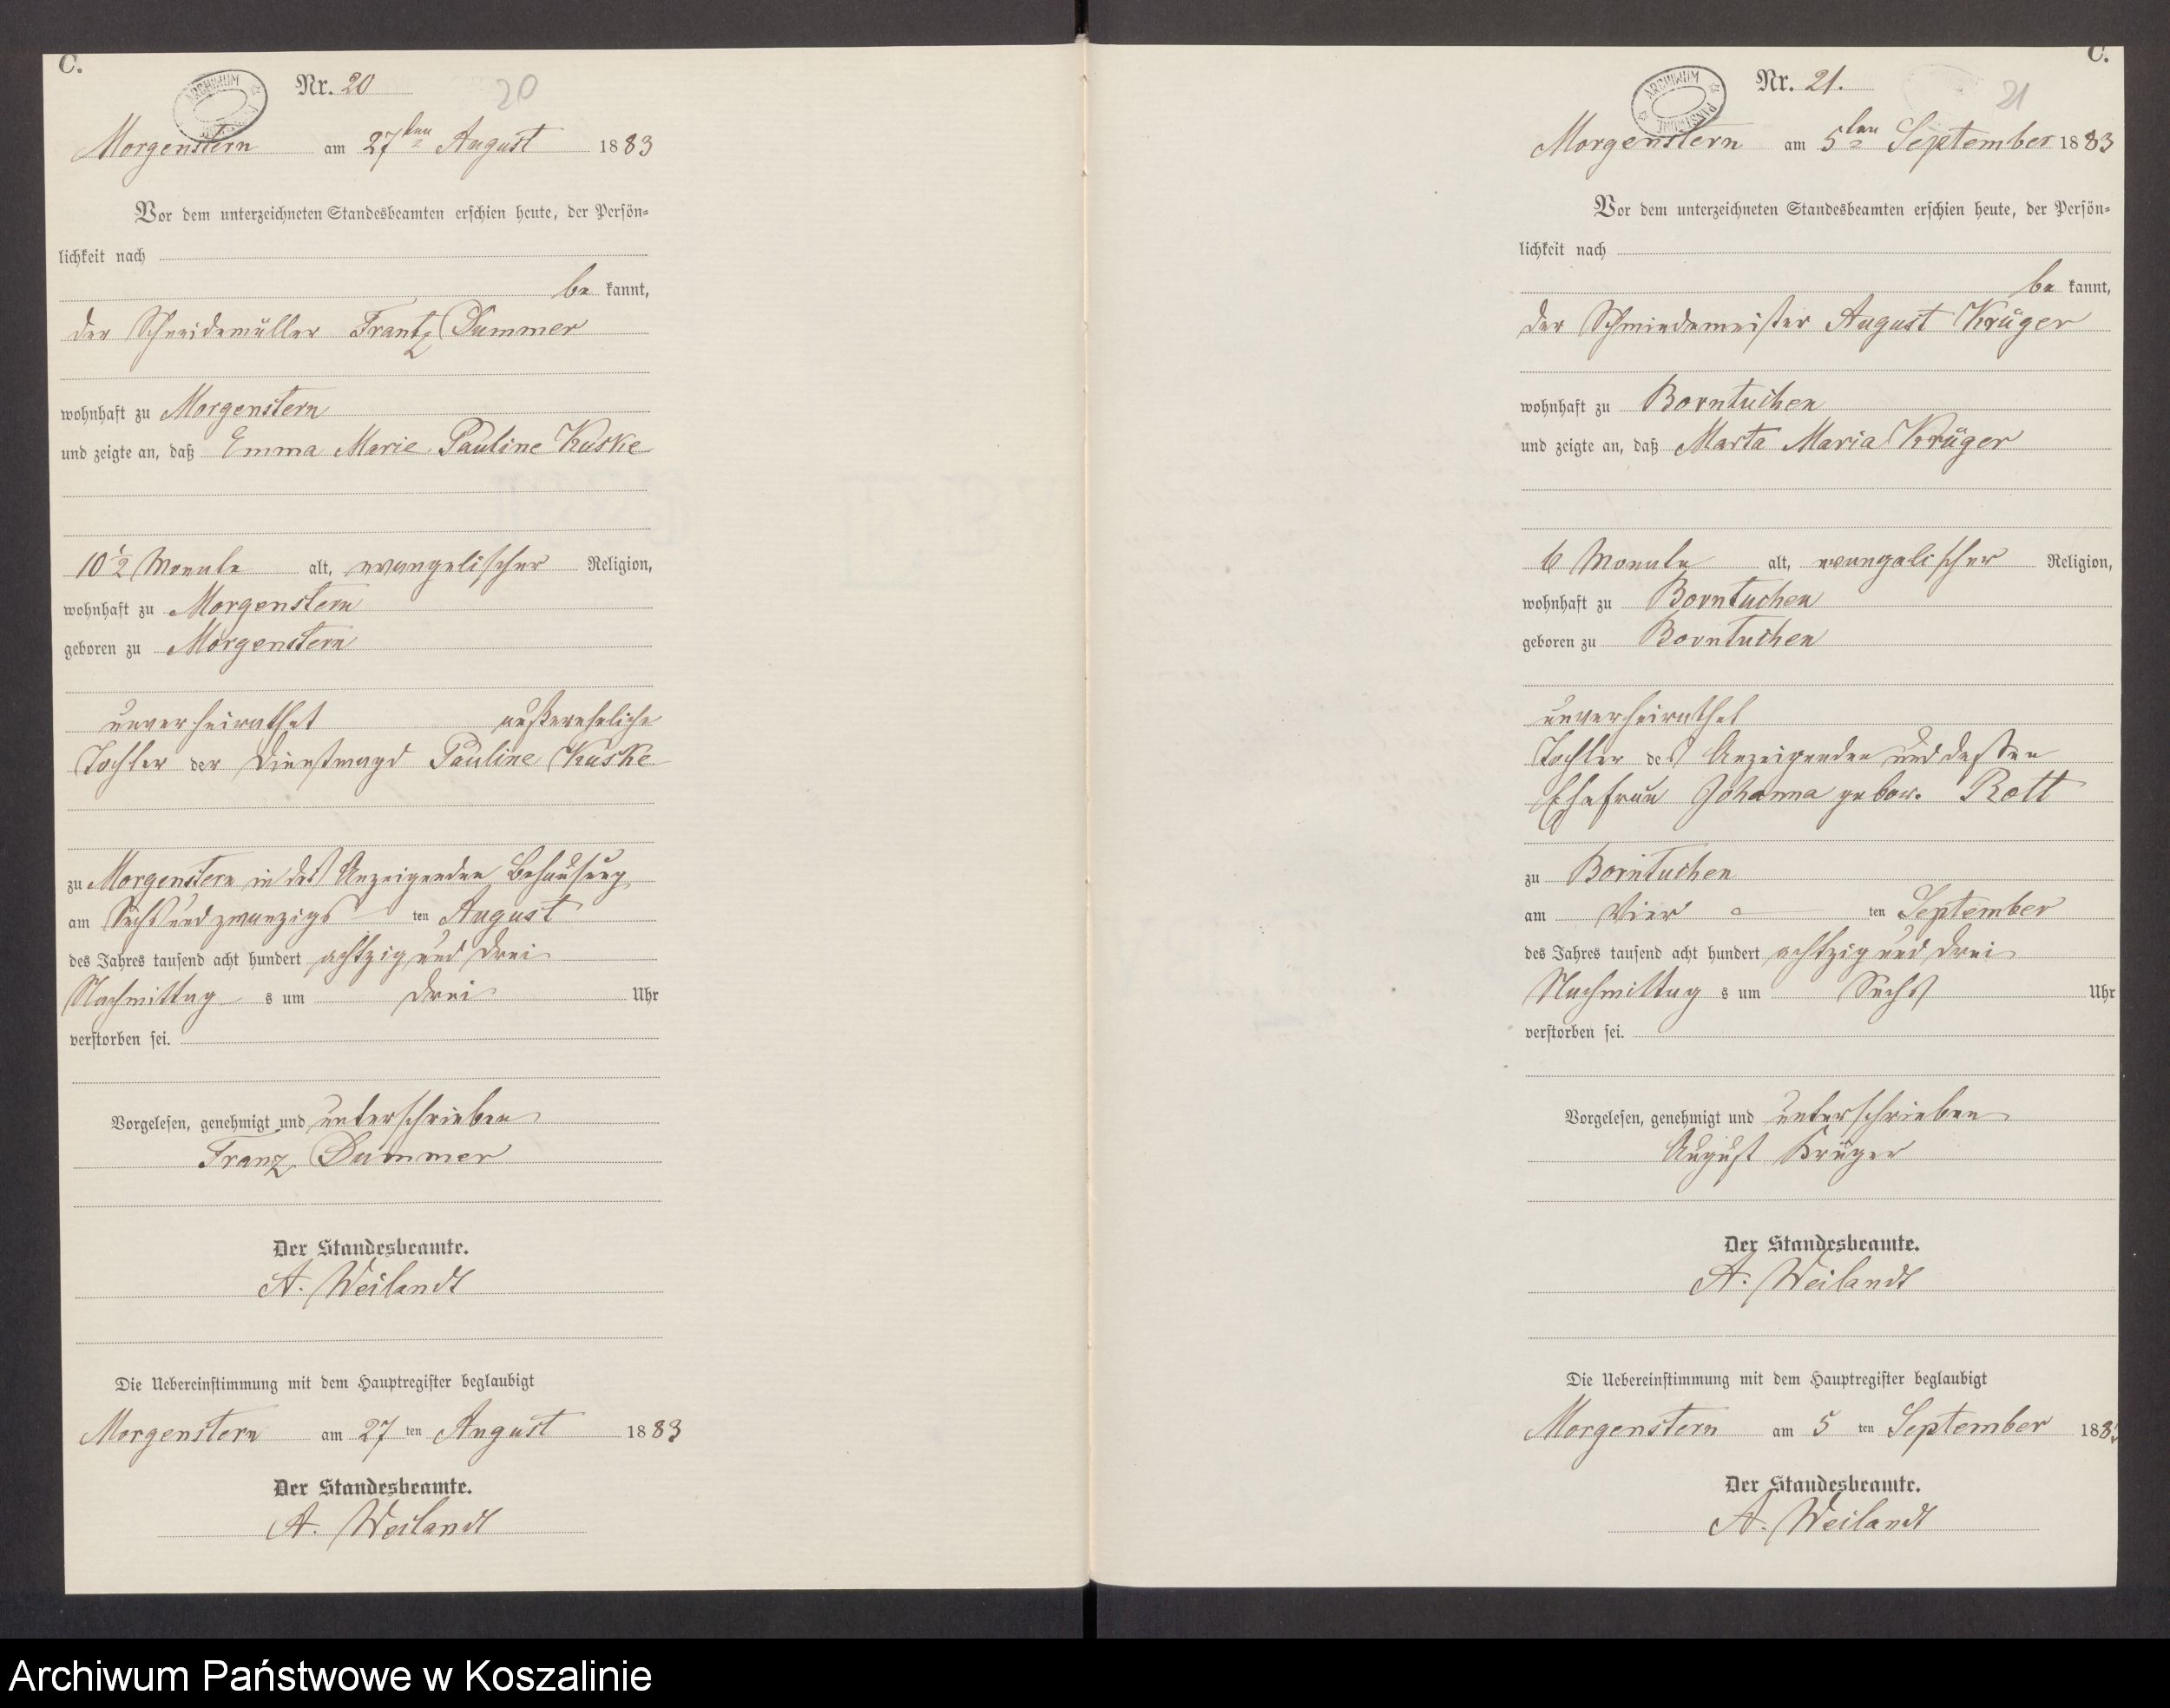 C.
Nr. 20
20
ARCHIWUM
Morgenstern am 27ten August 1883
Vor dem unterzeichneten Standesbeamten erschien heute, der Persön=
lichkeit nach
be kannt,
der Schneidemüller Frantz Dummer
wohnhaft zu Morgenstern
und zeigte an, daß Emma Marie Pauline Kuske
10 1/2 Monate alt, evangelischer Religion,
wohnhaft zu Morgenstern
geboren zu Morgenstern
unverheirathet außereheliche
Tochter der Dienstmagd Pauline Kuske
zu Morgenstern in des Anzeigenden Behausung
am Sechsundzwanzigs ten August
des Jahres tausend acht hundert achtzig und drei
Nachmittag s um drei Uhr
verstorben sei.
Vorgelesen, genehmigt und unterschrieben
Franz Dummer
Der Standesbeamte.
A. Weilandt
Die Uebereinstimmung mit dem Hauptregister beglaubigt
Morgenstern am 27 ten August 1883
Der Standesbeamte.
A. Weilandt
C.
Nr. 21.
21
ARCHIWUM PAŃSTWOWE
Morgenstern am 5ten September 1883
Vor dem unterzeichneten Standesbeamten erschien heute, der Persön=
lichkeit nach
be kannt,
der Schmiedemeister August Krüger
wohnhaft zu Borntuchen
und zeigte an, daß Marta Maria Krüger
6 Monate alt, evangelischer Religion,
wohnhaft zu Borntuchen
geboren zu Borntuchen
unverheirathet
Tochter des Anzeigenden und dessen
Ehefrau Johanna gebor. Rott
zu Borntuchen
am Vier ten September
des Jahres tausend acht hundert achtzig und drei
Nachmittag s um Sechs Uhr
verstorben sei.
Vorgelesen, genehmigt und unterschrieben
August Krüger
Der Standesbeamte.
A. Weilandt
Die Uebereinstimmung mit dem Hauptregister beglaubigt
Morgenstern am 5 ten September 1883
Der Standesbeamte.
A. Weilandt
Archiwum Państwowe w Koszalinie